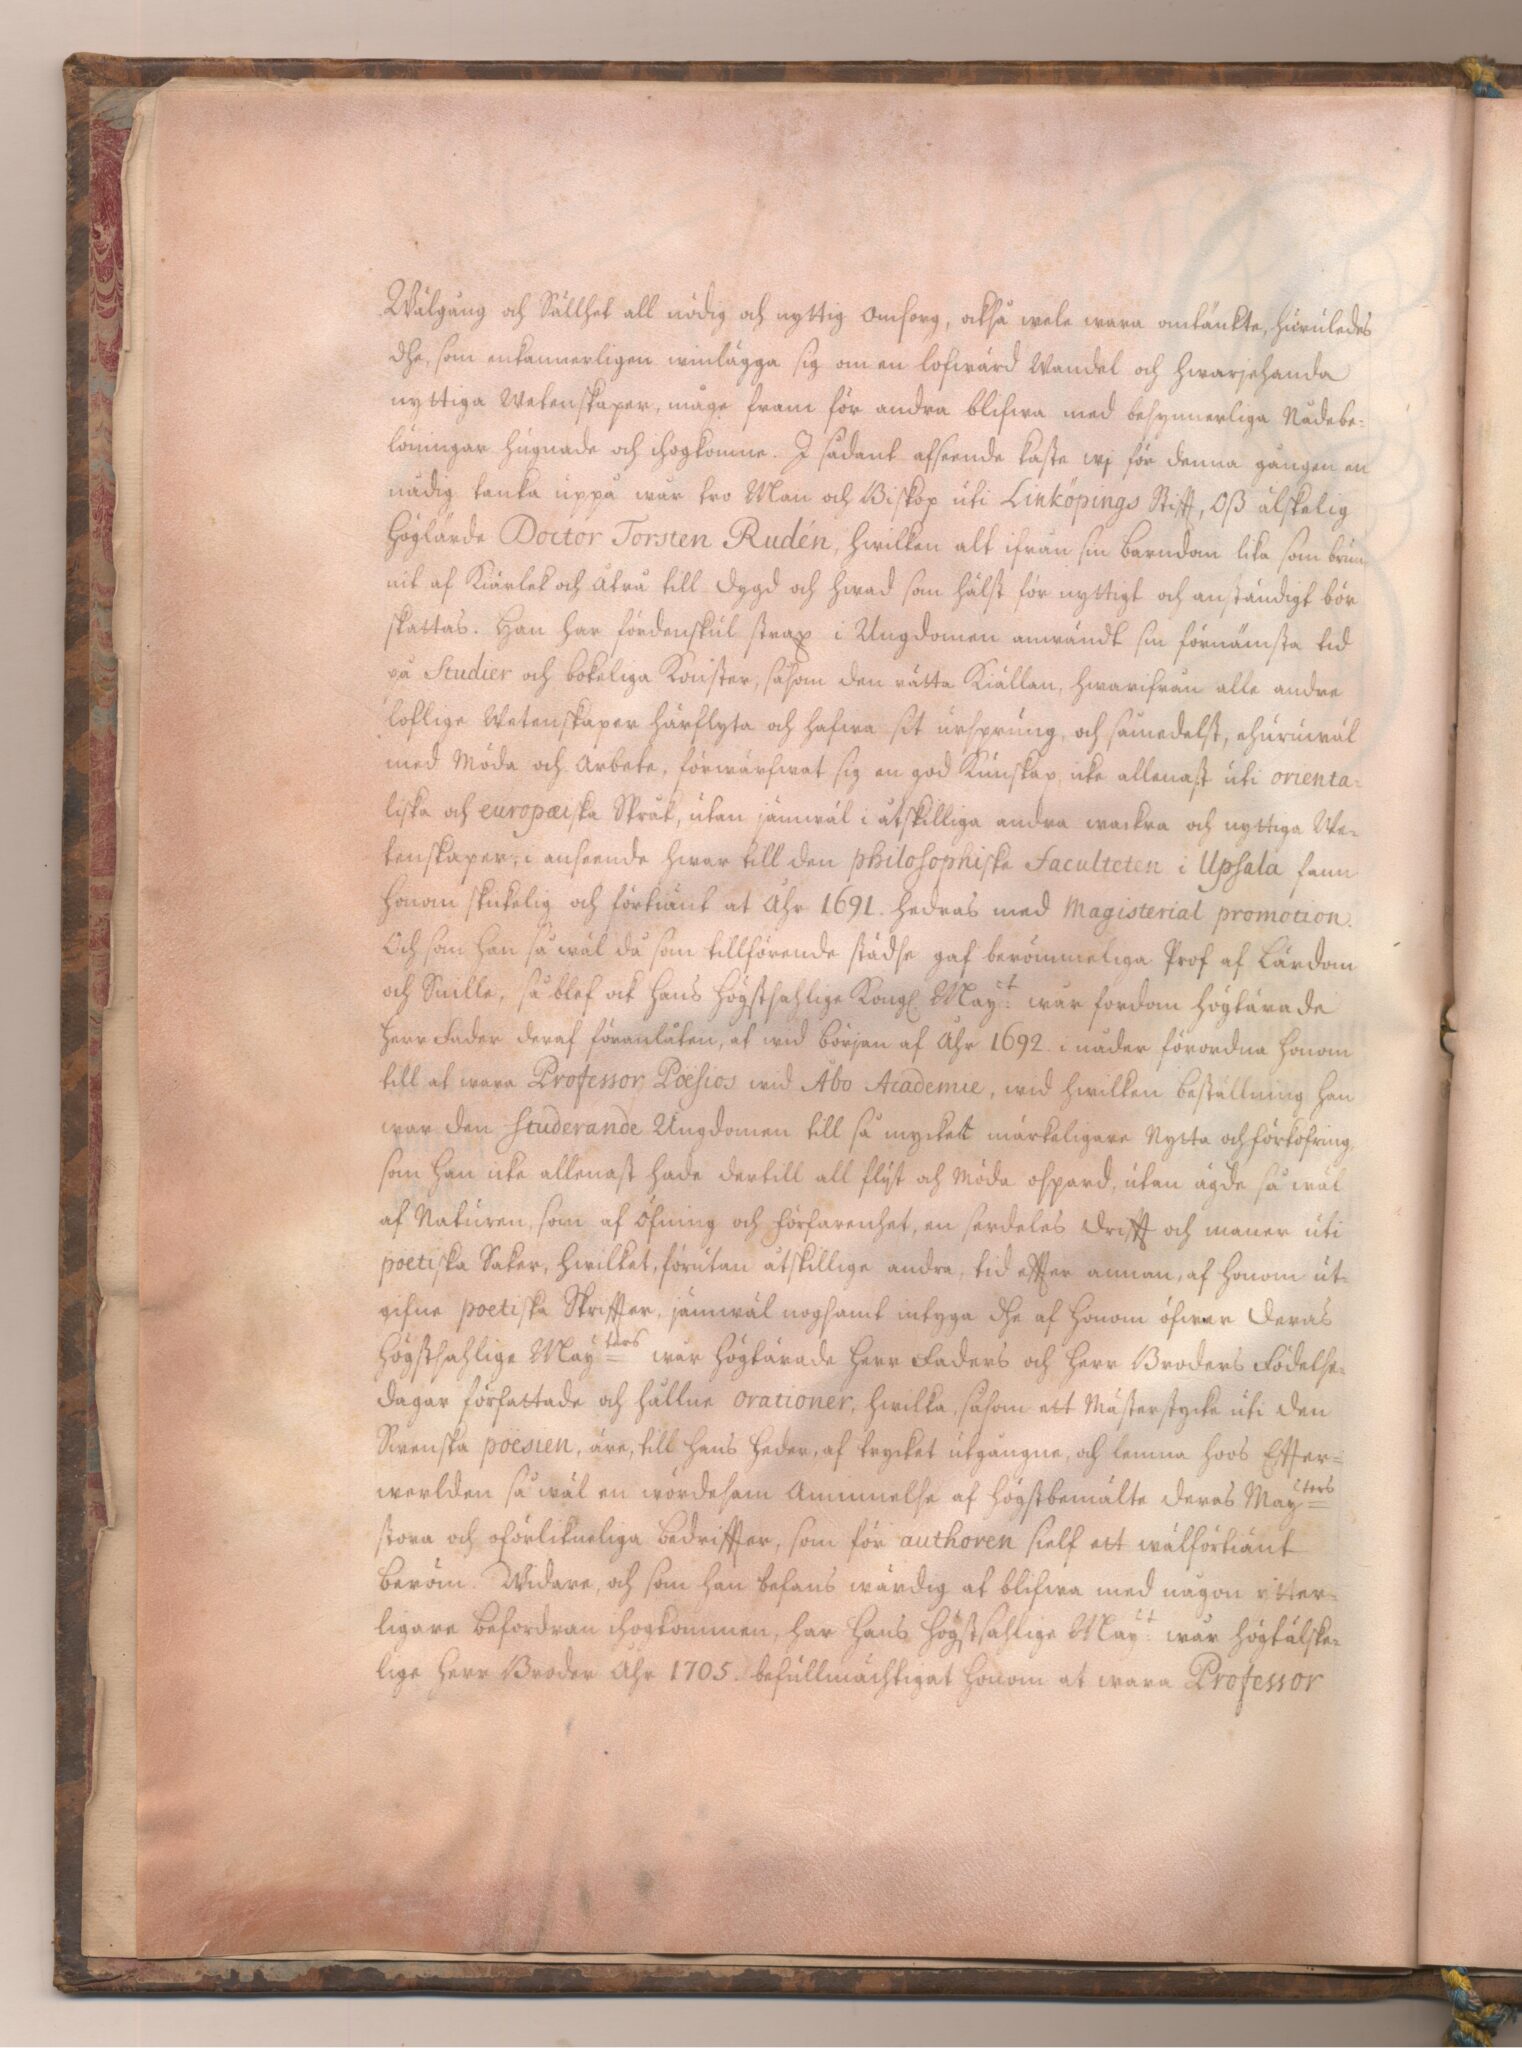 Wälgång och Sällhet all nödig och nyttig omsorg, också wele wara omtänkte, huruledes
dhe, som enkannerligen winlägga sig om en lofwärd Wandel och hwarjehanda
nyttiga Wetenskaper, måge fram för andra blifwa med besynnerliga Nådebe-
löningar hugnade och ihogkomne. I sådant afseende kaste wj för denna gången en
nådig tanka uppå wår tro Man och Biskop uti Linköpings Stifft, Oß älskelig
Höglärde Doctor Torsten Rudén, hwilken alt ifrån sin barndom lika som brun-
nit af Kiärlek och Åtrå till dygd och hwad som hälst för nyttigt och anständigt bör
skattas. Han har fördenskul strax i Ungdomen anwändt sin förnämsta tid
på Studier och bokeliga Konster, såsom den rätta Kiällan, hwarifrån alle andre
loflige Wetenskaper härflyta och hafwa sit ursprung, och såmedelst, ehuruwäl
med Möda och Arbete, förwärfwat sig en god Kunskap icke allenast uti orienta-
liska och europæiska Språk, utan jämwäl i åtskilliga andra wackra och nyttiga We-
tenskaper, i anseende hwar till den philosophiske Faculteten i Upsala fann
honom skickelig och förtiänt at Åhr 1691. hedras med Magisterial promotion.
Och som han så wäl då som tillförende städse gaf berömmeliga Prof af Lärdom
och Snille, så blef ock Hans Högstsahlige Kongl May:t wår fordom högtärade
Herr Fader deraf föranlåten, at wid början af Åhr 1692. i nåder förordna honom
till at wara Professor Poësios wid Åbo Academie, wid hwilken beställning han
war den studerande Ungdomen till så mycket märkeligare Nytta och förkofring,
som han icke allenast hade dertill all flijt och Möda ospard, utan ägde så wäl
af Naturen, som af Öfning och förfarenhet, en serdeles drifft och maner uti
poetiska Saker, hwilket, förutan åtskillige andra, tid effter annan, af honom ut-
gifne poetiska Skriffter, jämwäl nogsamt intyga dhe af honom öfwer Deras
Högstsahlige May:ters wår Högtärade Herr Faders och Herr Broders Födelse-
dagar författade och hållne orationer, hwilka, såsom ett Mästerstycke uti den
Swenska poësien, äre, till hans heder, af trycket utgångne, och lemna hoos Effter-
werlden så wäl en wördesam Åminnelse af Högstbemälte Deras May:ters
stora och oförlikneliga bedriffter, som för authoren sielf ett wälförtiänt
beröm. Widare, och som han befans wärdig at blifwa med någon ytter-
ligare befordran ihogkommen, har Hans Högstsahlige May:t wår högtälske-
lige Herr Broder Åhr 1705. befullmächtigat honom at wara Professor